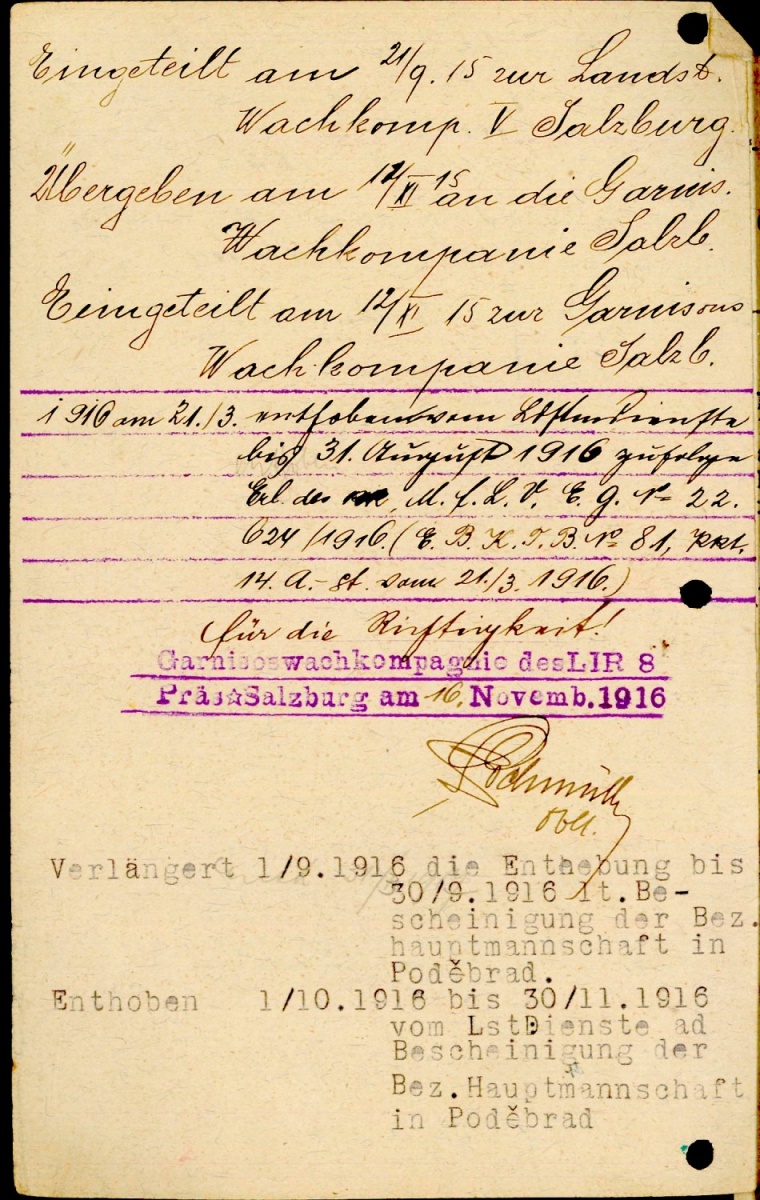 Eingeteilt am 21/9. 15 zur Landst.
Wachkomp. V Salzburg.
Übergeben am 12/XI 15 an die Garnis.
Wachkompanie Salzb.
Eingeteilt am 12/XI 15 zur Garnisons
Wachkompanie Salzb.
1916 am 21./3. enthoben vom Lstmdienste
bis 31. August 1916 zufolge
Erl. des M. f. L. V. E. g. No 22.
624/1916. (E. B. K. T. B. No 81, kkt.
14. A.- st. vom 21./3. 1916.)
für die Richtigkeit!
Garnisoswachkompagnie des LIR 8
Präs☆Salzburg am 16. Novemb. 1916
Oblt.
Verlängert 1/9.1916 die Enthebung bis
30/9.1916 lt. Be-
scheinigung der Bez.
hauptmannschaft in
Poděbrad.
Enthoben 1/10.1916 bis 30/11.1916
vom LstDienste ad
Bescheinigung der
Bez. Hauptmannschaft
in Poděbrad